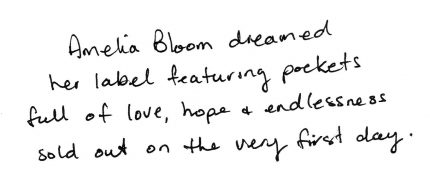 Amelia Bloom dreamed
her label featuring pockets
full of love, hope & endlessness
sold out on the very first day.